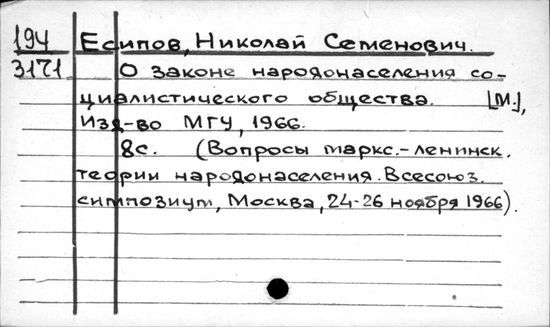 194 Есипов, Николай Семенович.
3171 О законе народонаселения со-
циалистического общества. [М.],
Изд-во МГУ, 1966.
8с. (Вопросы маркс.-ленинск.
теории народонаселения. Всесоюз.
симпозиум, Москва, 24-26 ноября 1966).